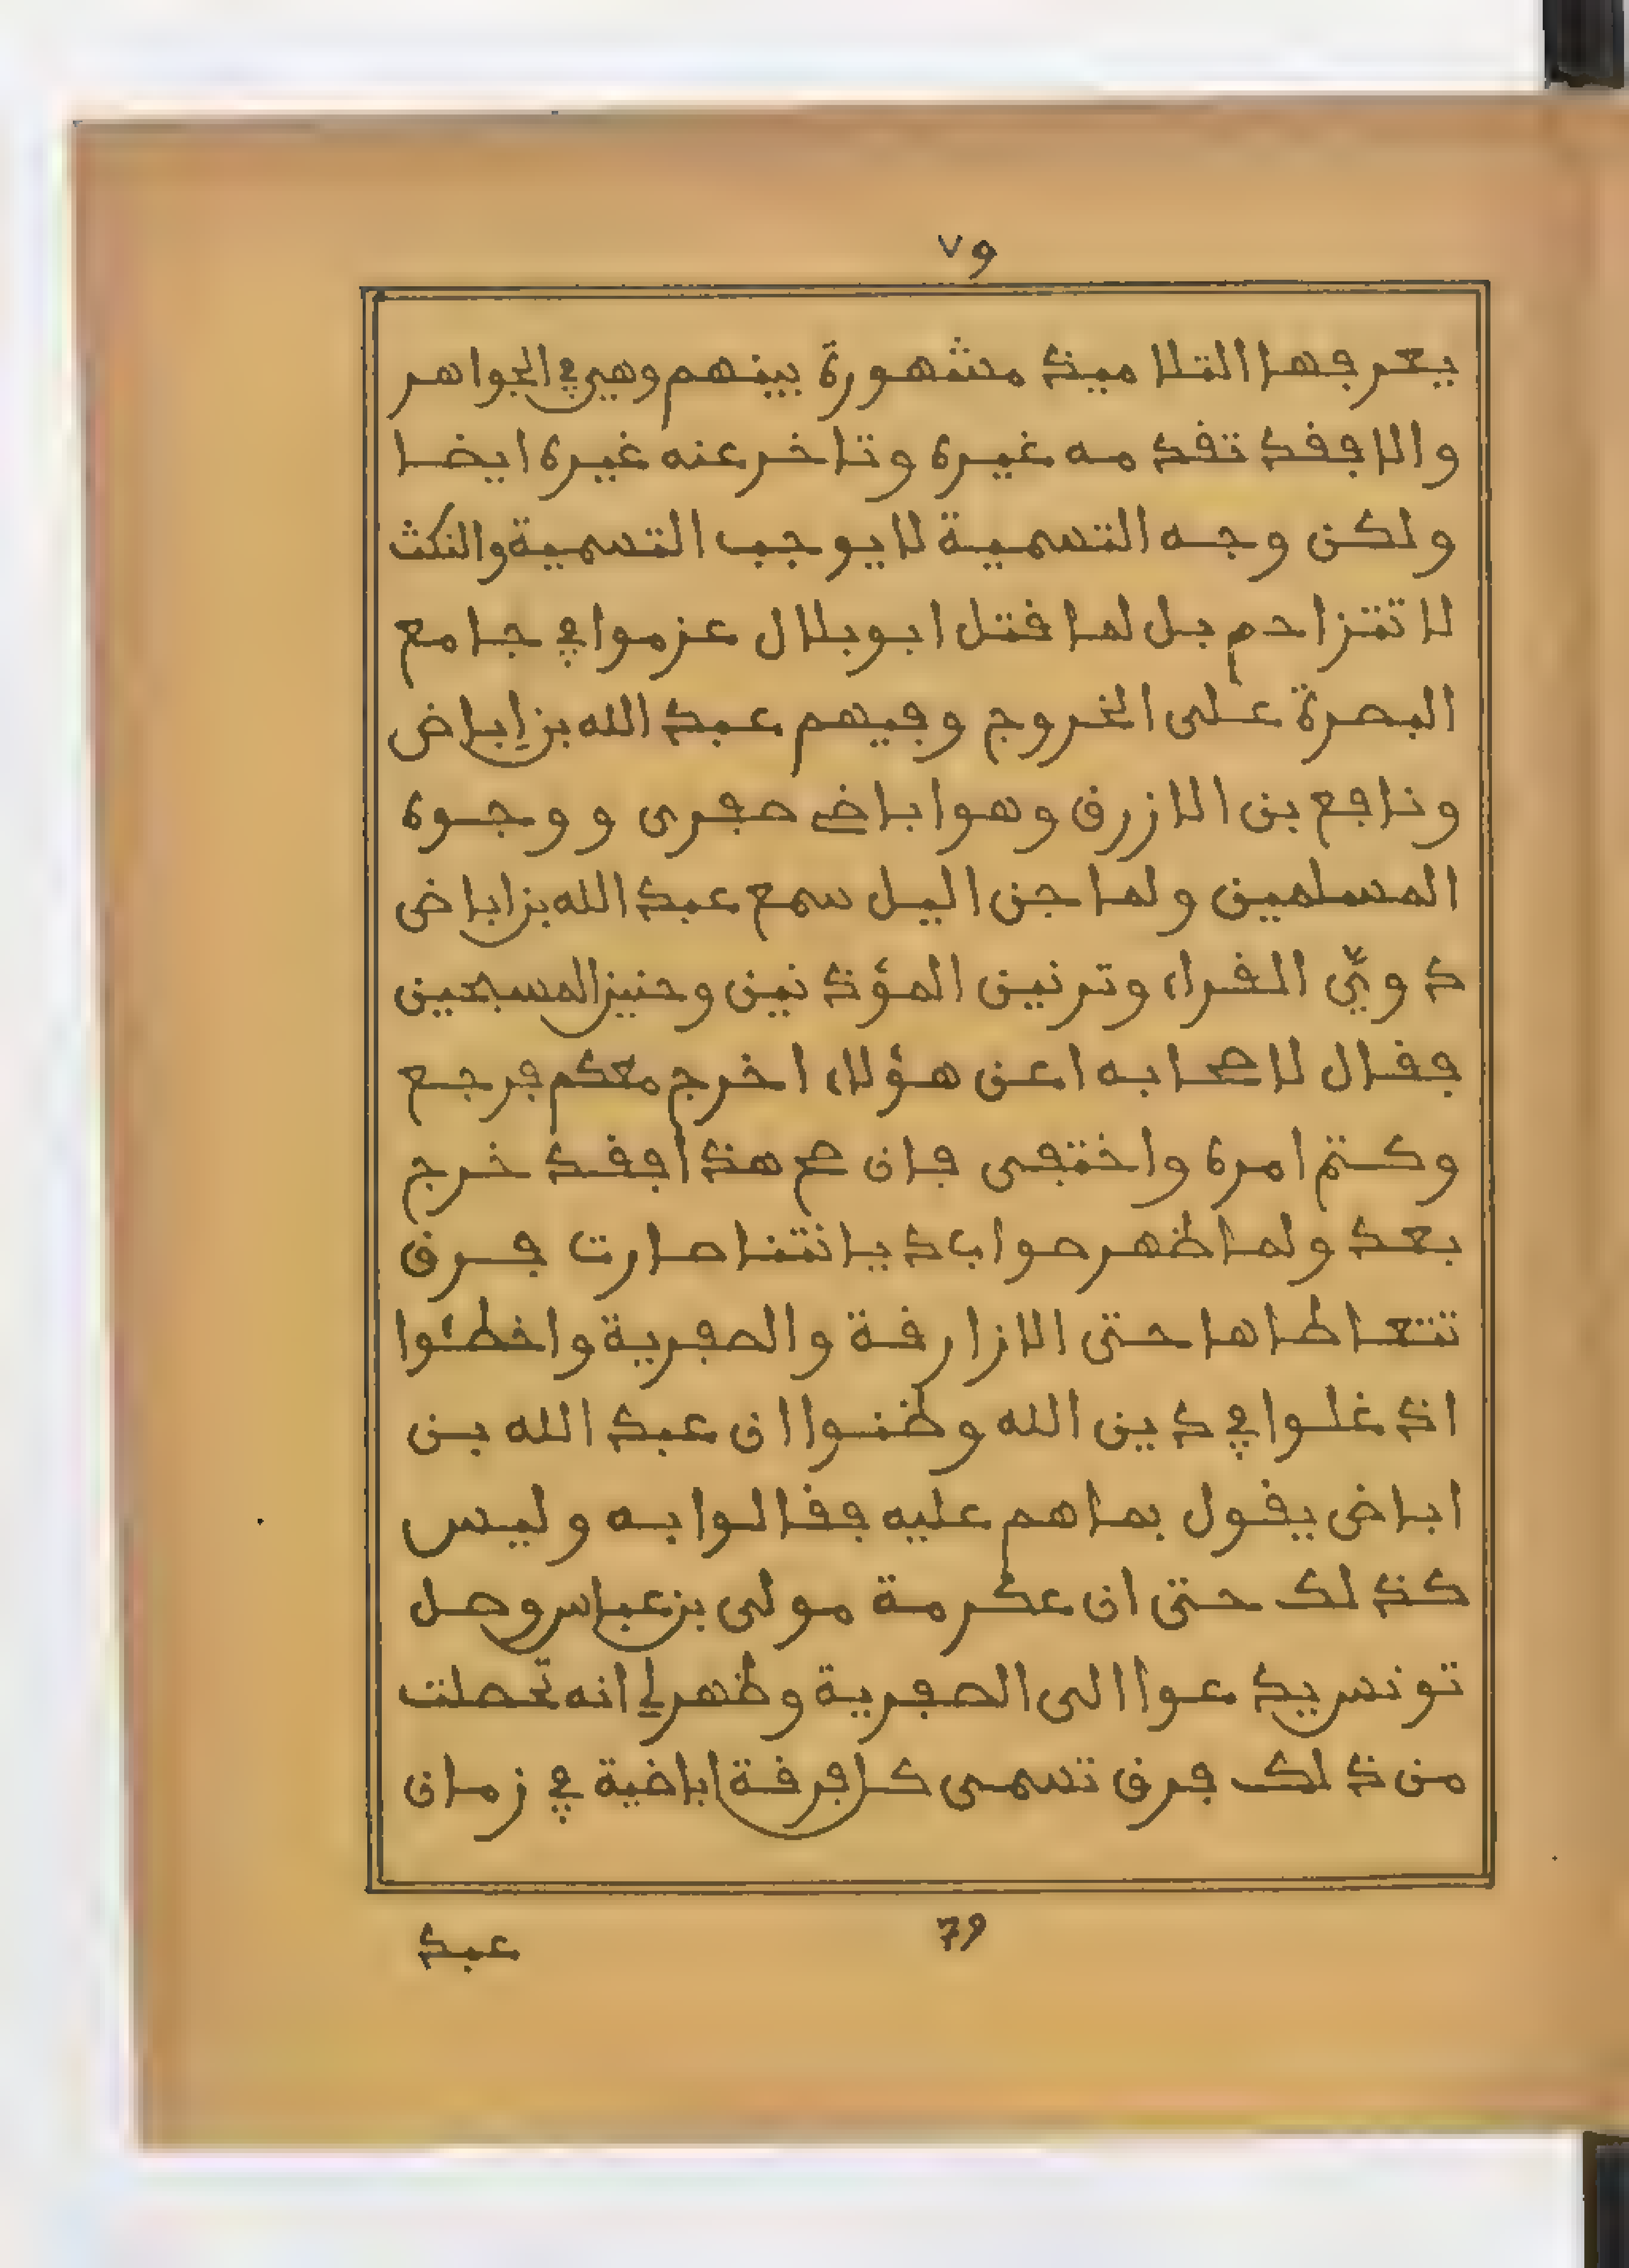 ٧٩
يعرفها التلاميذ مشهورة بينهم وهي في الجواهر
والا فقد تقدمه غيره وتاخر عنه غيره ايضا
ولكن وجه التسمية لا يوجب التسمية والنكث
لا تتزاحم بل لما قتل ابو بلال عزموا في جامع
البصرة على الخروج وفيهم عبد الله بن إباض
ونافع بن الازرق وهو اباضي صفرى ووجوه
المسلمين ولما جن اليل سمع عبد الله بن اباض
دويّ القراء وترنين المؤذنين وحنين المسبحين
فقال لاصحابه اعن هؤلاء اخرج معكم فرجع
وكتم امره واختفى فان صح هذا فقد خرج
بعد ولما ظهر صواب ديانتنا صارت فرق
تتعاطاها حتى الازارقة والصفرية واخطئوا
اذ غلوا في دين الله وظنوا ان عبد الله بن
اباض يقول بما هم عليه فقالوا به وليس
كذلك حتى ان عكرمة مولى بن عباس وصل
تونس يدعوا الى الصفرية وظهر لي انه تحصلت
من ذلك فرق تسمى كل فرقة اباضية في زمان
79
عبد